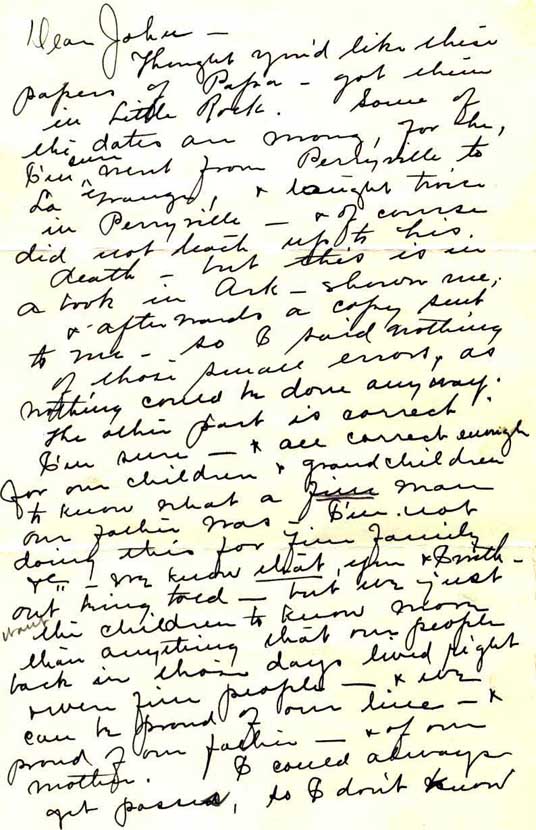 Dear John —
Thought you'd like these
papers of Papa — got them
in Little Rock. Some of
the dates are wrong, for he,
I'm sure went from Perryville to
La Grange, & taught twice
in Perryville — & of course
did not teach up to his
death — but this is in
a book in Ark — shown me,
& afterwards a copy sent
to me — so I said nothing
of those small errors, as
nothing could be done anyway.
The other part is correct
I'm sure — & all correct enough
for our children & grandchildren
to know what a fine man
our father was — I'm not
doing this for "fine family
&c" — we know that, you & I with-
out being told — but we just
want the children to know more
than anything that our people
back in those days lived right
& were fine people — & we
can be proud of our line — &
proud of our father — & of our
mother. I could always
get passes, so I don't know